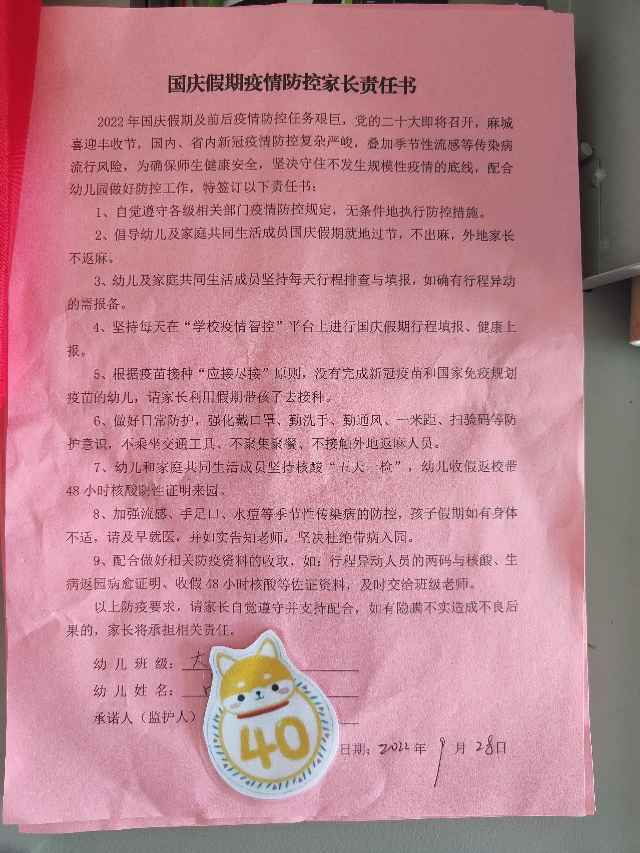 国庆假期疫情防控家长责任书
2022年国庆假期及前后疫情防控任务艰巨，党的二十大即将召开，麻城
喜迎丰收节，国内、省内新冠疫情防控复杂严峻，叠加季节性流感等传染病
流行风险，为确保师生健康安全，坚决守住不发生规模性疫情的底线，配合
幼儿园做好防控工作，特签订以下责任书：
1、自觉遵守各级相关部门疫情防控规定，无条件地执行防控措施。
2、倡导幼儿及家庭共同生活成员国庆假期就地过节，不出麻，外地家长
不返麻。
3、幼儿及家庭共同生活成员坚持每天行程排查与填报，如确有行程异动
的需报备。
4、坚持每天在“学校疫情智控”平台上进行国庆假期行程填报、健康上
报。
5、根据疫苗接种“应接尽接”原则，没有完成新冠疫苗和国家免疫规划
疫苗的幼儿，请家长利用假期带孩子去接种。
6、做好日常防护，强化戴口罩、勤洗手、勤通风、一米距、扫验码等防
护意识，不乘坐交通工具、不聚集聚餐、不接触外地返麻人员。
7、幼儿和家庭共同生活成员坚持核酸“五天一检”，幼儿收假返校带
48小时核酸阴性证明来园。
8、加强流感、手足口、水痘等季节性传染病的防控，孩子假期如有身体
不适，请及早就医，并如实告知老师，坚决杜绝带病入园。
9、配合做好相关防疫资料的收取，如：行程异动人员的两码与核酸、生
病返园病愈证明、收假48小时核酸等佐证资料，及时交给班级老师。
以上防疫要求，请家长自觉遵守并支持配合，如有隐瞒不实造成不良后
果的，家长将承担相关责任。
幼儿班级：大
幼儿姓名：
承诺人（监护人）
40
日期：2022年9月28日